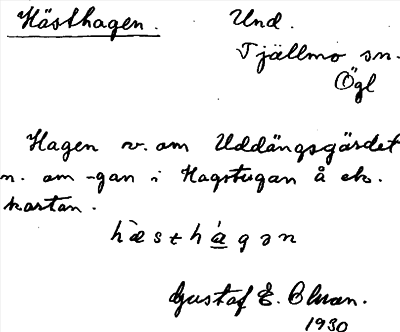 Hästhagen. Und.
Tjällmo sn.
Ögl
Hagen v. om Uddängsgärdet
n. om -gan i Hagstugan å ek.
kartan.
hὰesthágən
Gustaf E.
1930